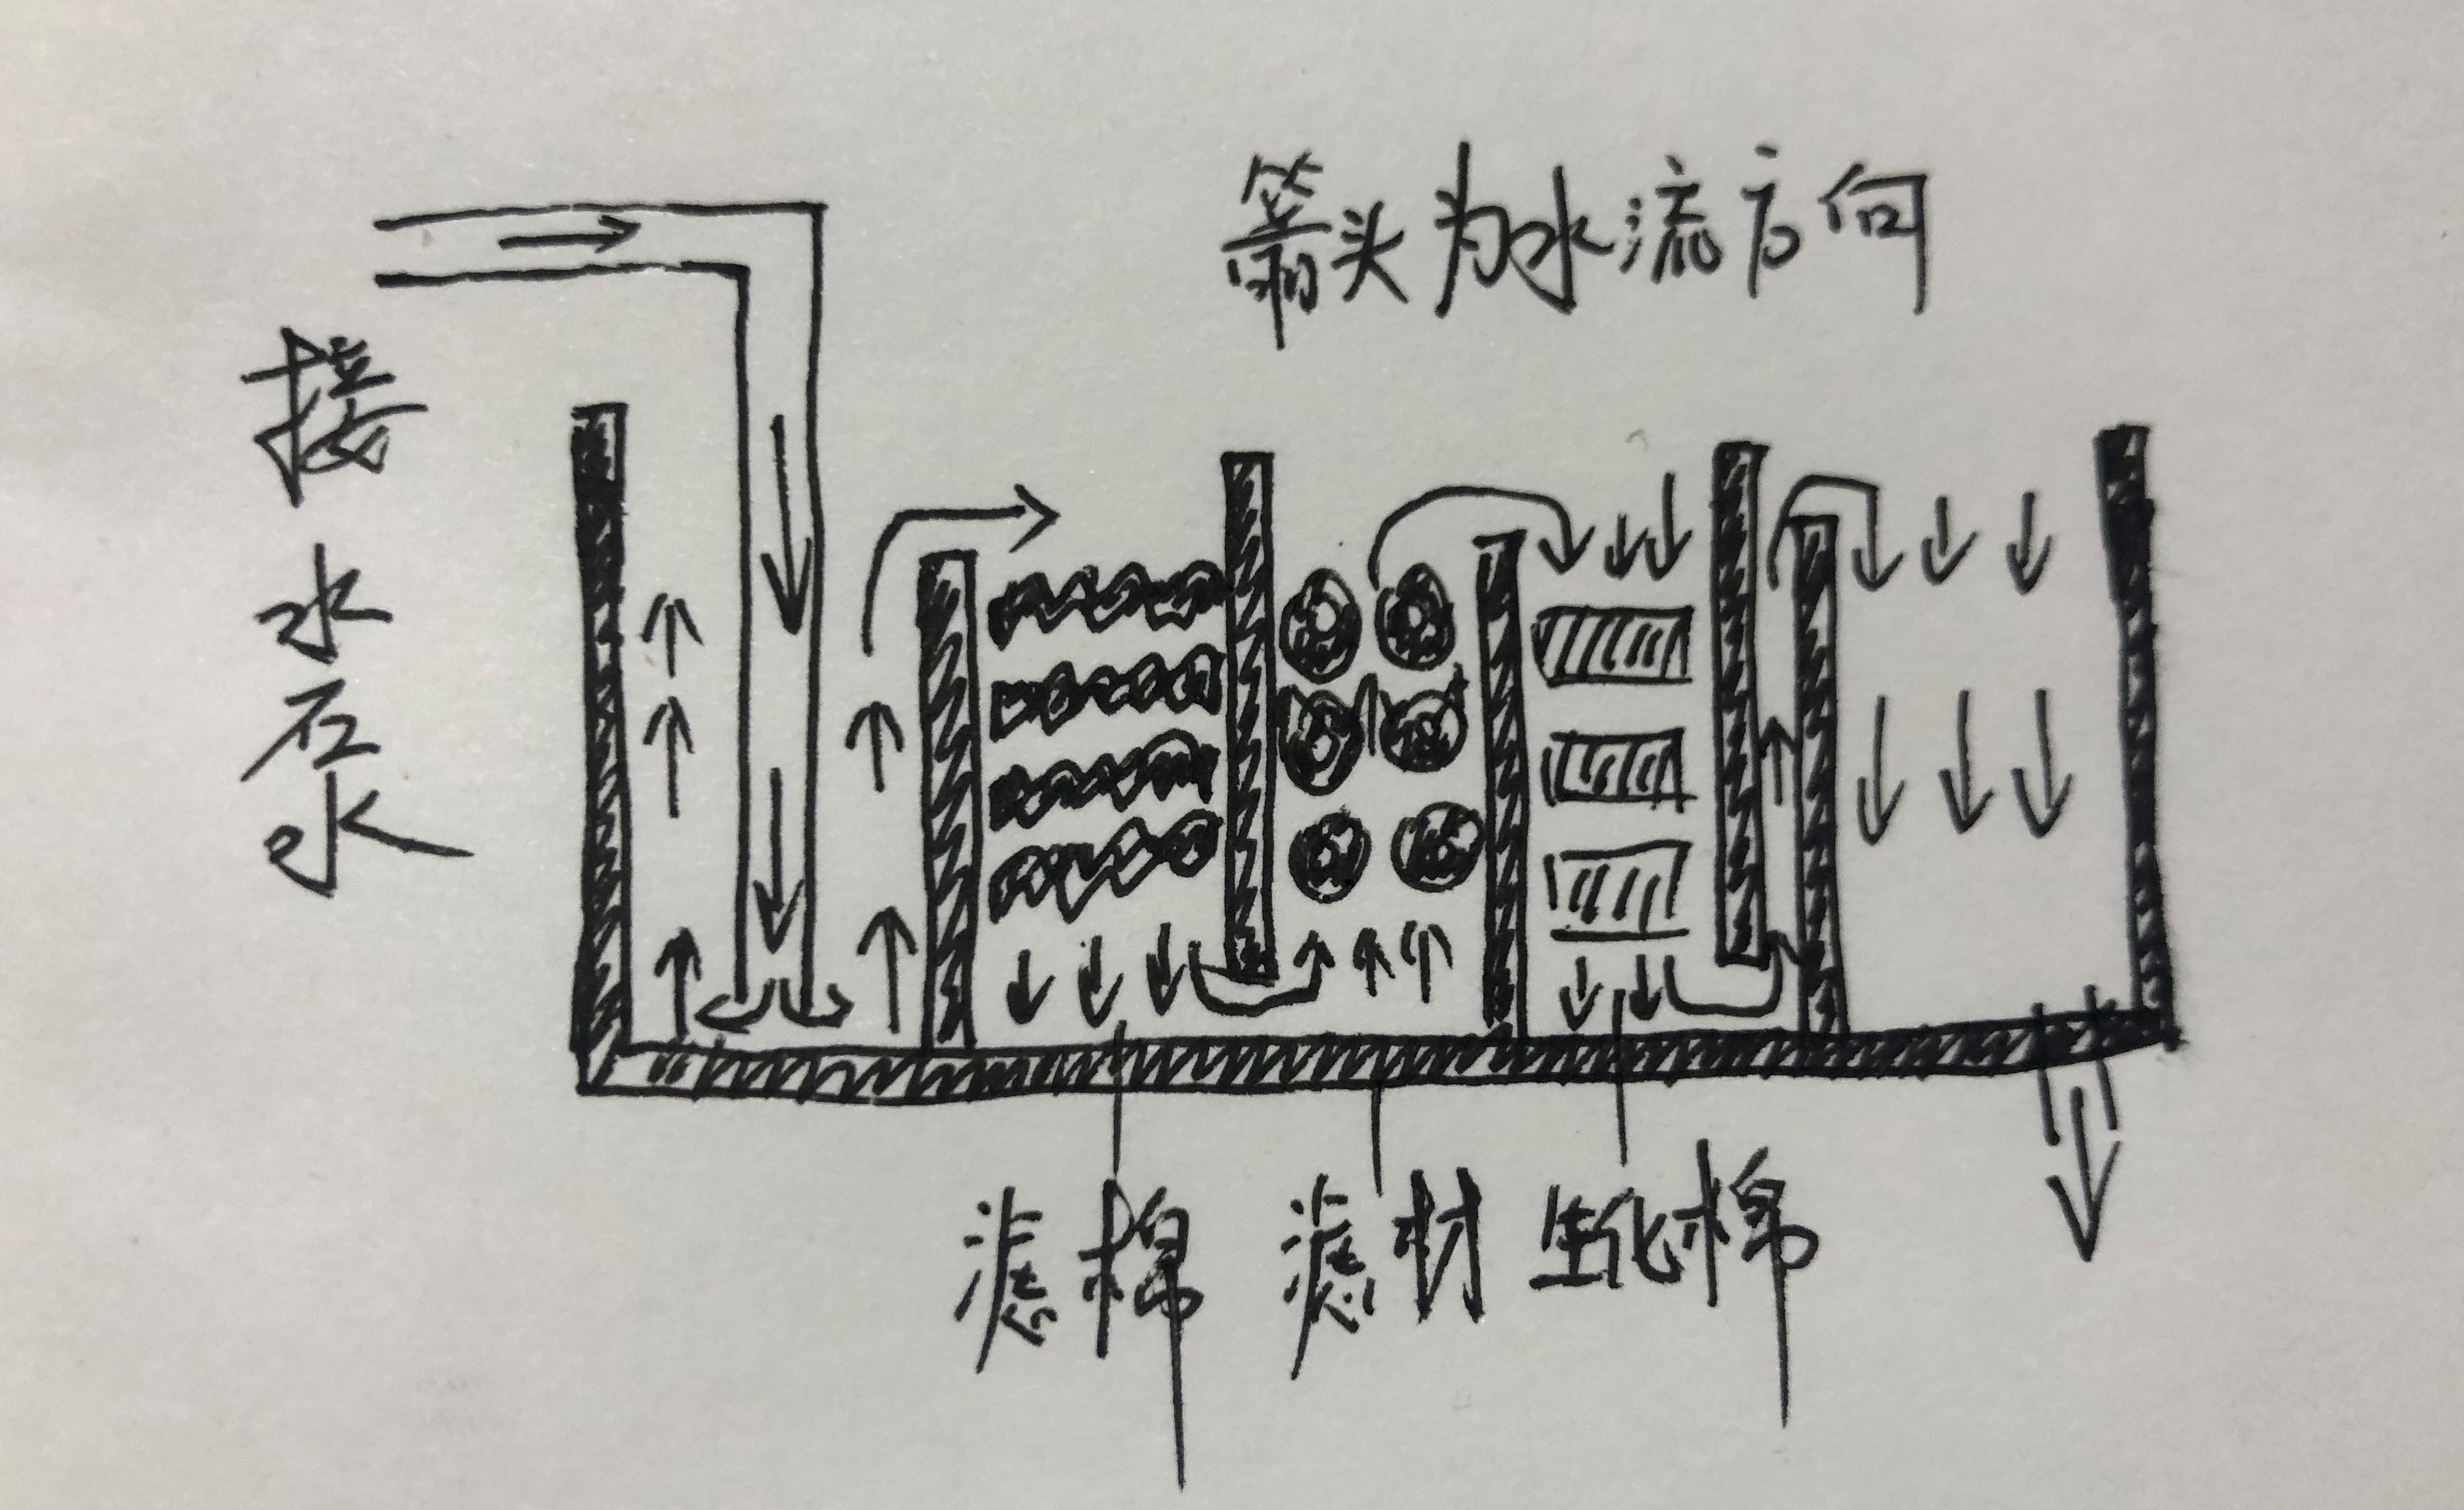 箭头为水流方向
接水泵
滤棉 滤材 生化棉